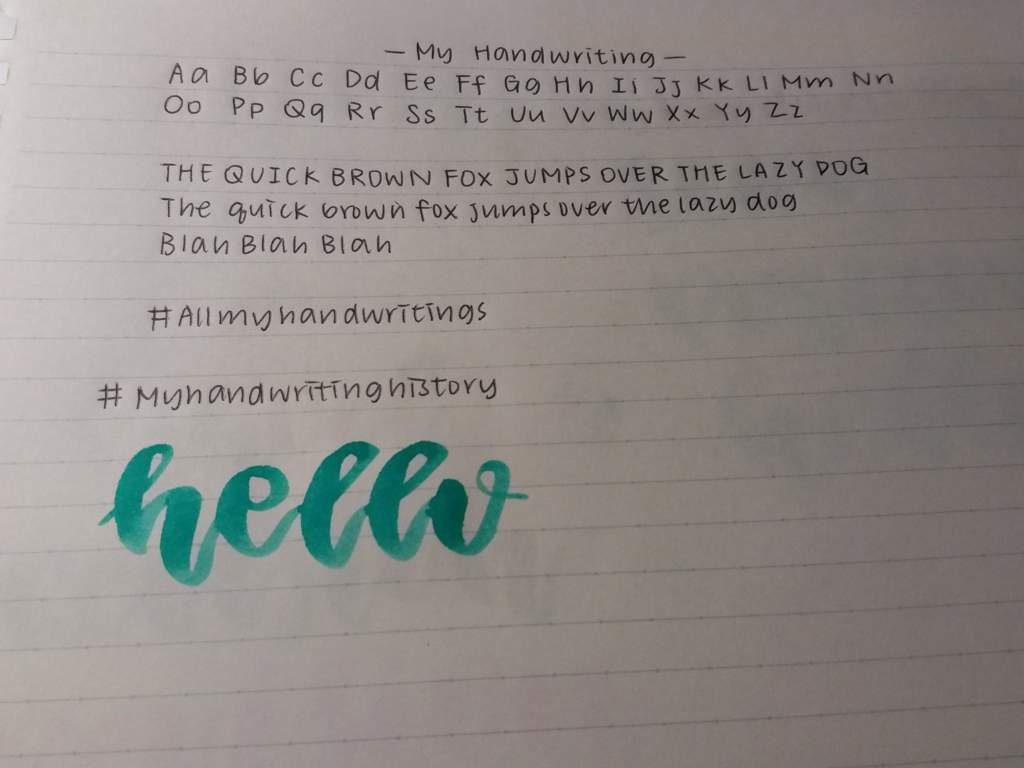 — My Handwriting —
Aa Bb Cc Dd Ee Ff Gg Hh Ii Jj Kk Ll Mm Nn
Oo Pp Qq Rr Ss Tt Uu Vv Ww Xx Yy Zz
THE QUICK BROWN FOX JUMPS OVER THE LAZY DOG
The quick brown fox jumps over the lazy dog
Blah Blah Blah
#Allmyhandwritings
#Myhandwritinghistory
hello